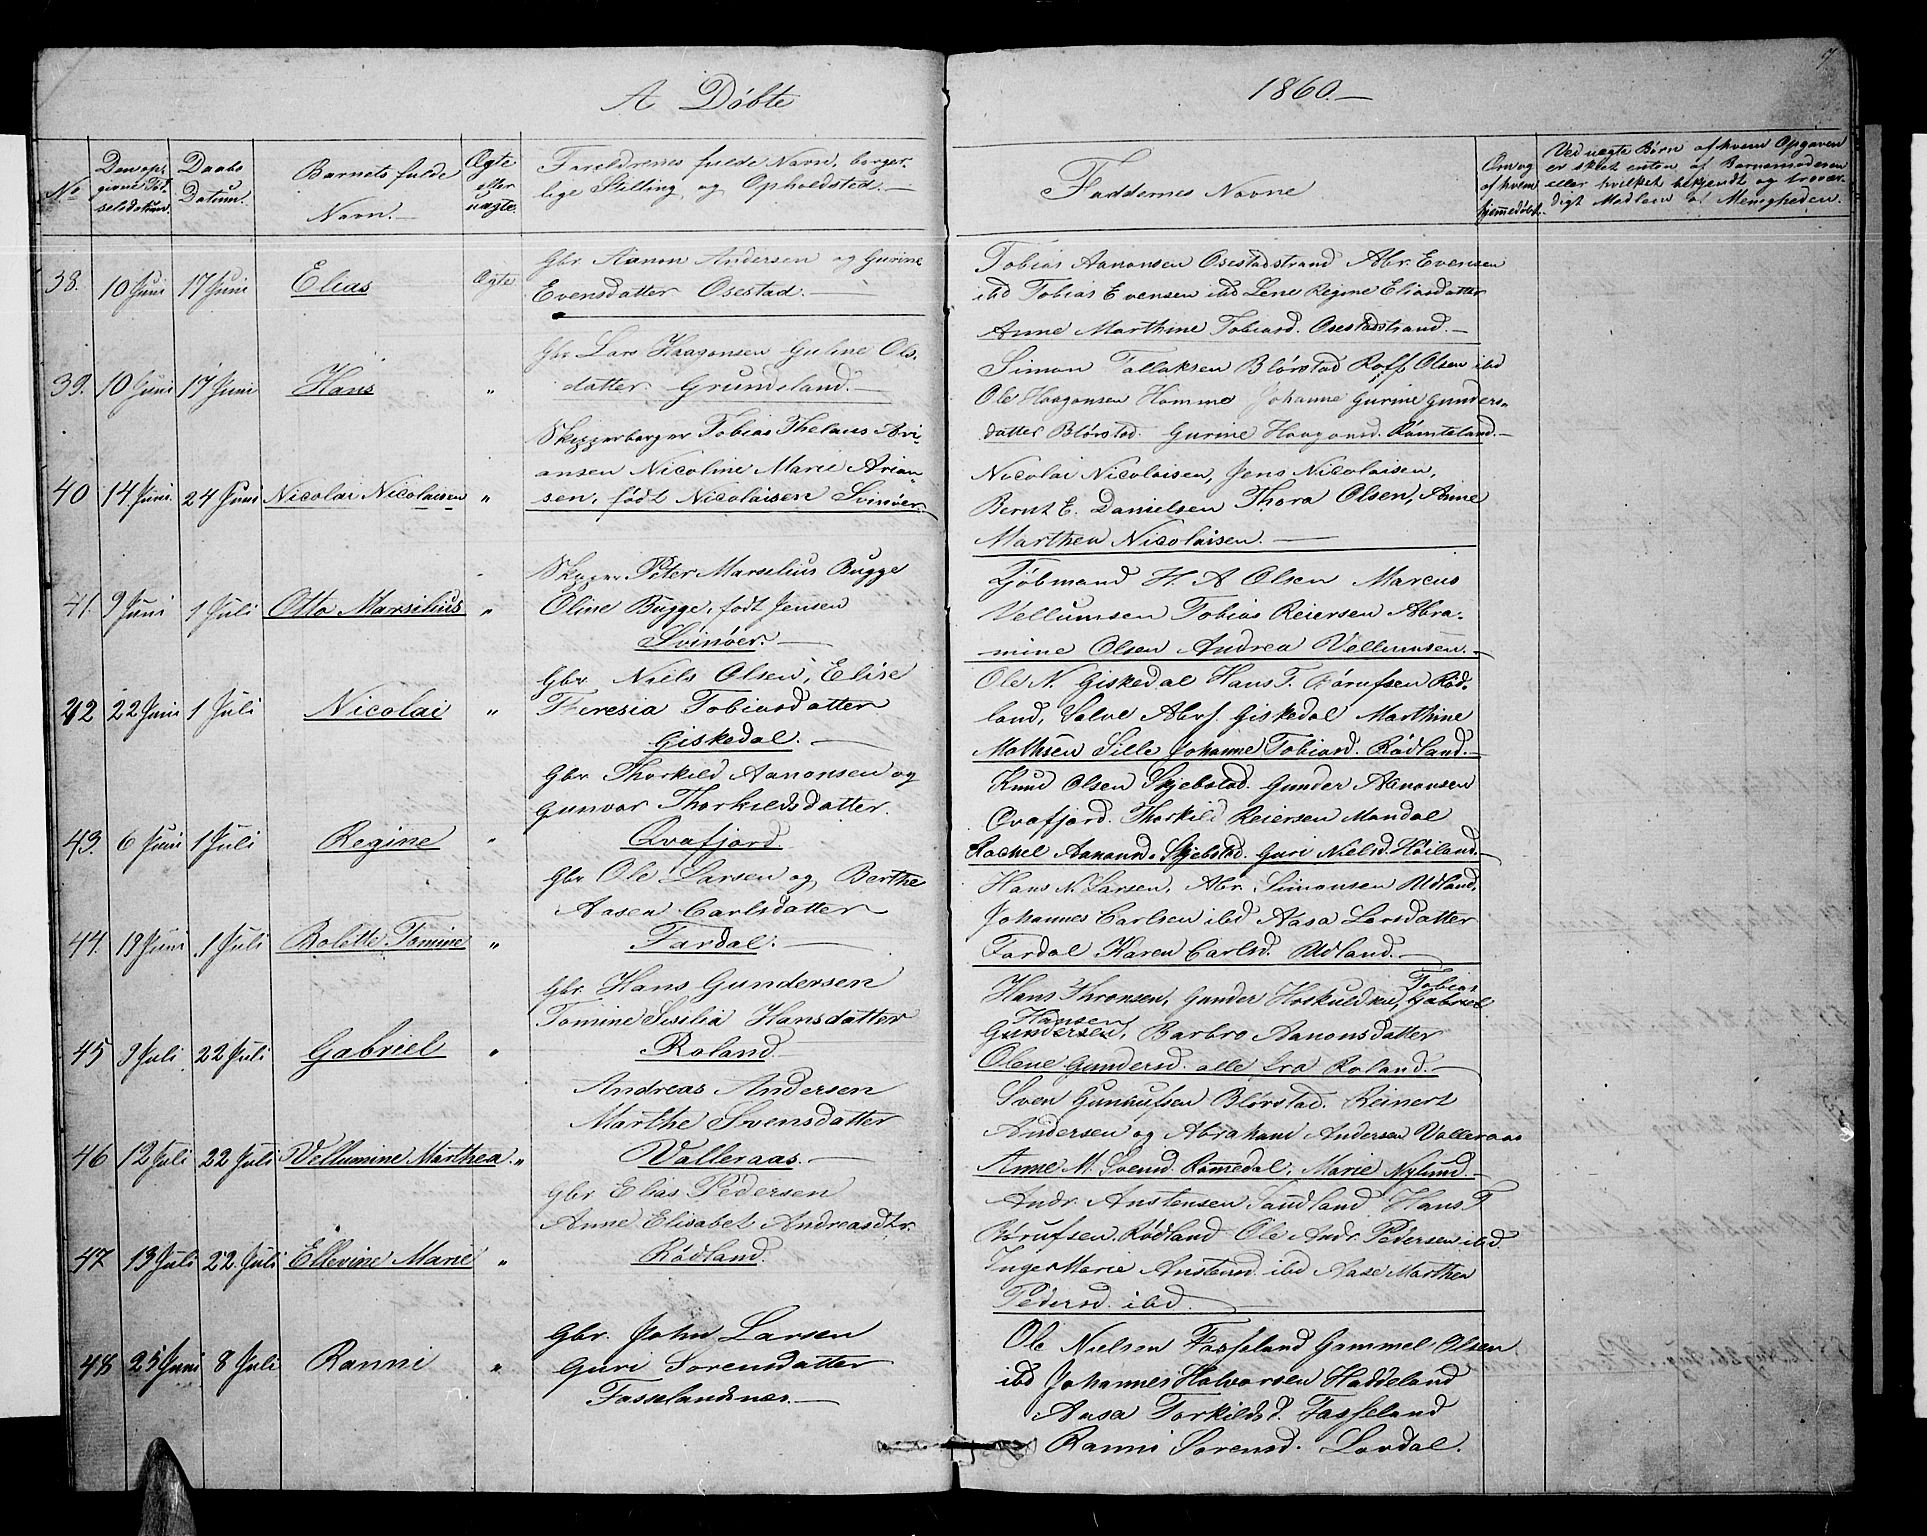 7
A Døbte
1860.—
No
Den opgivne Fødselsdatum.
Daabs Datum.
Barnets fulde Navn.—
Ægte eller uægte.
Forældrenes fulde Navn, borgerlige Stilling og Opholdsted.—
Faddernes Navne
Om og af hvem hjemmedøbt.
Ved uægte Børn af hvem Opgaven er skeet enten af Barnemoderen eller hvilket bekjendt og troværdigt Medlem af Menigheden.
38. 10 Juni 17 Juni Elias Ægte
Gbr Aanon Andersen og Gurine
Evensdatter Osestad.—
Tobias Aanonsen Osestadstrand Abr. Evensen
ibd Tobias Evensen ibd Lene Regine Eliasdatter
Anne Marthine Tobiasd. Osestadstrand.—
39. 10 Juni 17 Juni Hans "
Gbr Lars Haagonsen Guline Ols-
datter Grundeland.—
Simon Tallaksen Blørstad Roff Olsen ibd
Ole Haagonsen Homme Johanne Gurine Gunders-
datter Blørstad. Gurine Haagonsd. Røinteland.—
40 14 Juni 24 Juni Nicolai Nicolaisen "
Skipperborger Tobias Thelaus Ari-
ansen Nicoline Marie Arian-
sen, født Nicolaisen Svinøer.
Nicolai Nicolaisen, Jens Nicolaisen,
Bernt E. Danielsen Thora Olsen, Anne
Marthea Nicolaisen.—
41. 9 Juni 1 Juli Otto Marsilius "
Skipper Peter Marselius Bugge
Oline Bugge, født Jensen
Svinøer.—
Kjøbmand H. A Olsen Marcus
Vellumsen Tobias Reiersen Abra-
mine Olsen Andrea Vellumsen.—
42 22 Juni 1 Juli Nicolai "
Gbr Niels Olsen, Elise
Theresia Tobiasdatter
Giskedal.—
Ole N. Giskedal Hans T. Børufsen Rød-
land, Salve Abrs. Giskedal Marthine
Mathsen Sille Johanne Tobiasd. Rødland.—
43. 6 Juni 1 Juli Regine "
Gbr Thorkild Aanonsen og
Gunvor Thorkildsdatter.
Qvafjord
Knud Olsen Skjebstad. Gunder Aanonsen
Qvafjord. Thorkild Reiersen Mandal
Rachel Aanonsd. Skjebstad. Guri Nielsd. Høiland.—
44. 19 Juni 1 Juli Bolette Tomine "
Gbr Ole Larsen og Berthe
Aasen Carlsdatter
Fardal.—
Hans N. Larsen, Abr. Simonsen Udland,
Johannes Carlsen ibd Aasa Larsdatter
Fardal Karen Carlsd. Udland.—
45 9 Juli 22 Juli Gabriel "
Gbr. Hans Gundersen
Tomine Sisilia Hansdatter
Roland
Hans Thronsen, Gunder Hoskuldsen, Tobias Gabriel
Hansen
Gundersen, Barbro Aanonsdatter
Olene Gundersd. alle fra Roland.—
46 12 Juli 22 Juli Vellumine Marthea "
Andreas Andersen
Marthe Svensdatter
Valleraas.—
Sven Gunnufsen Blørstad. Reinert
Andersen og Abraham Andersen Valleraas
Anne M. Svensd. Romedal, Marie Nylund.—
47 13 Juli 22 Juli Ellevine Marie "
Gbr Elias Pedersen
Anne Elisabet Andreasdtr.
Rødland.
Andr. Anstensen Sandland Hans T
Børufsen Rødland Ole Andr. Pedersen ibd.
Inger Marie Anstensd. ibd Aase Marthea
Pedersd. ibd.
48 25 Juni 8 Juli Ranni "
Gbr. John Larsen
Guri Sorensdatter
Fasselandsnæs.—
Ole Nielsen Fasseland Gammel Olsen
ibd Johannes Halvorsen Haddeland
Aasa Torkildsd. Fasseland
Ranni Sorensd. Lovdal.